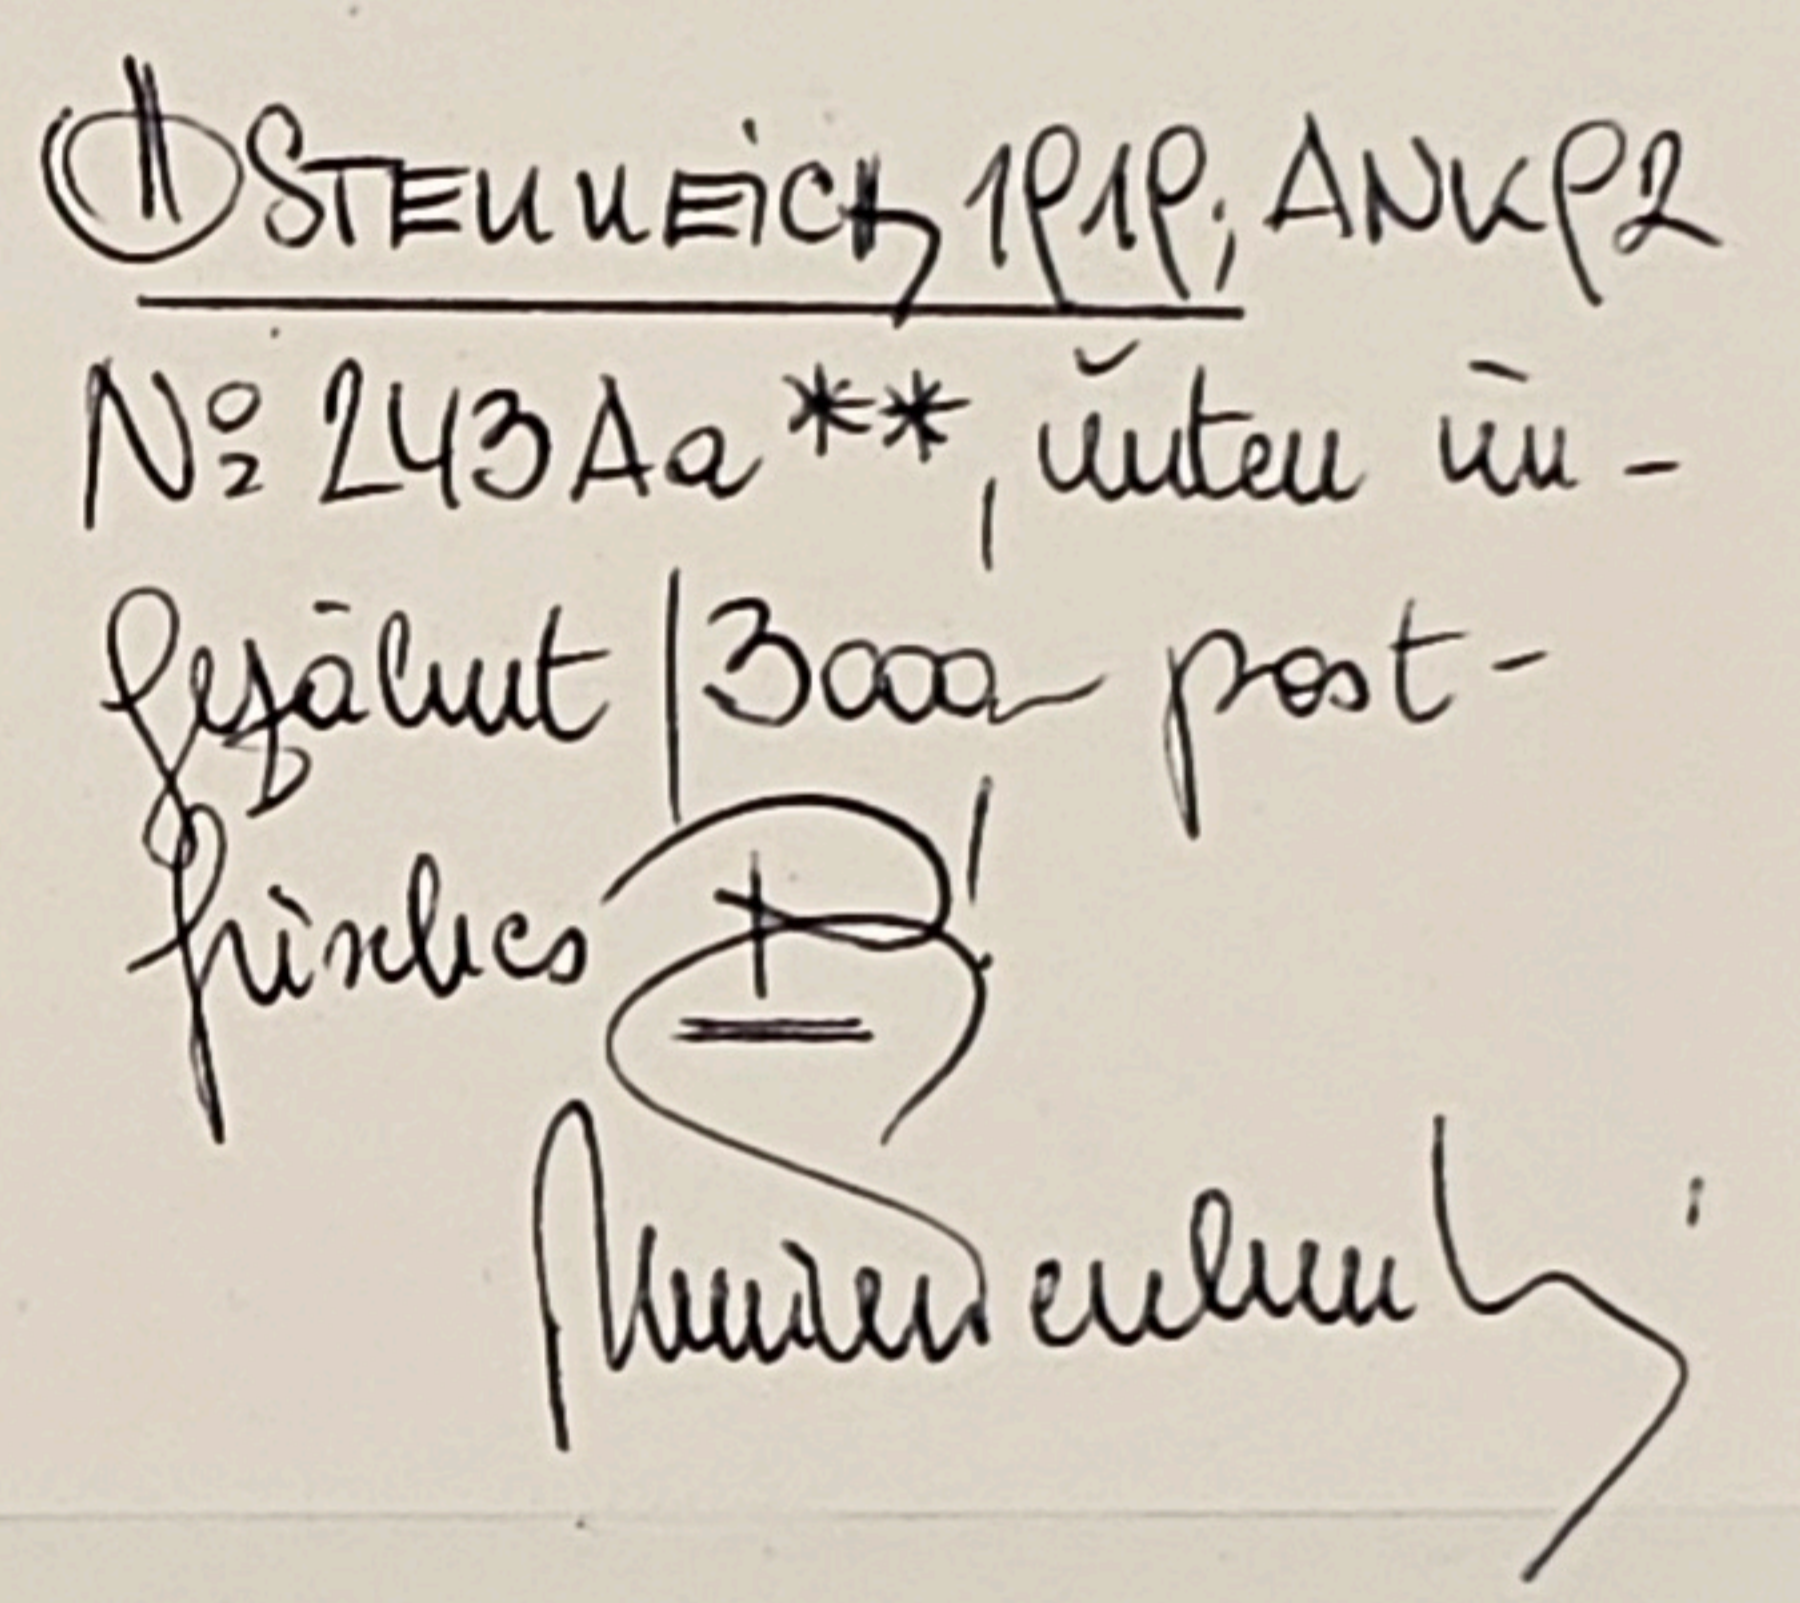 ÖSTERREICH 1919; ANK92
No 243Aa**, unten un-
gezähnt |3000,- post-
frisches